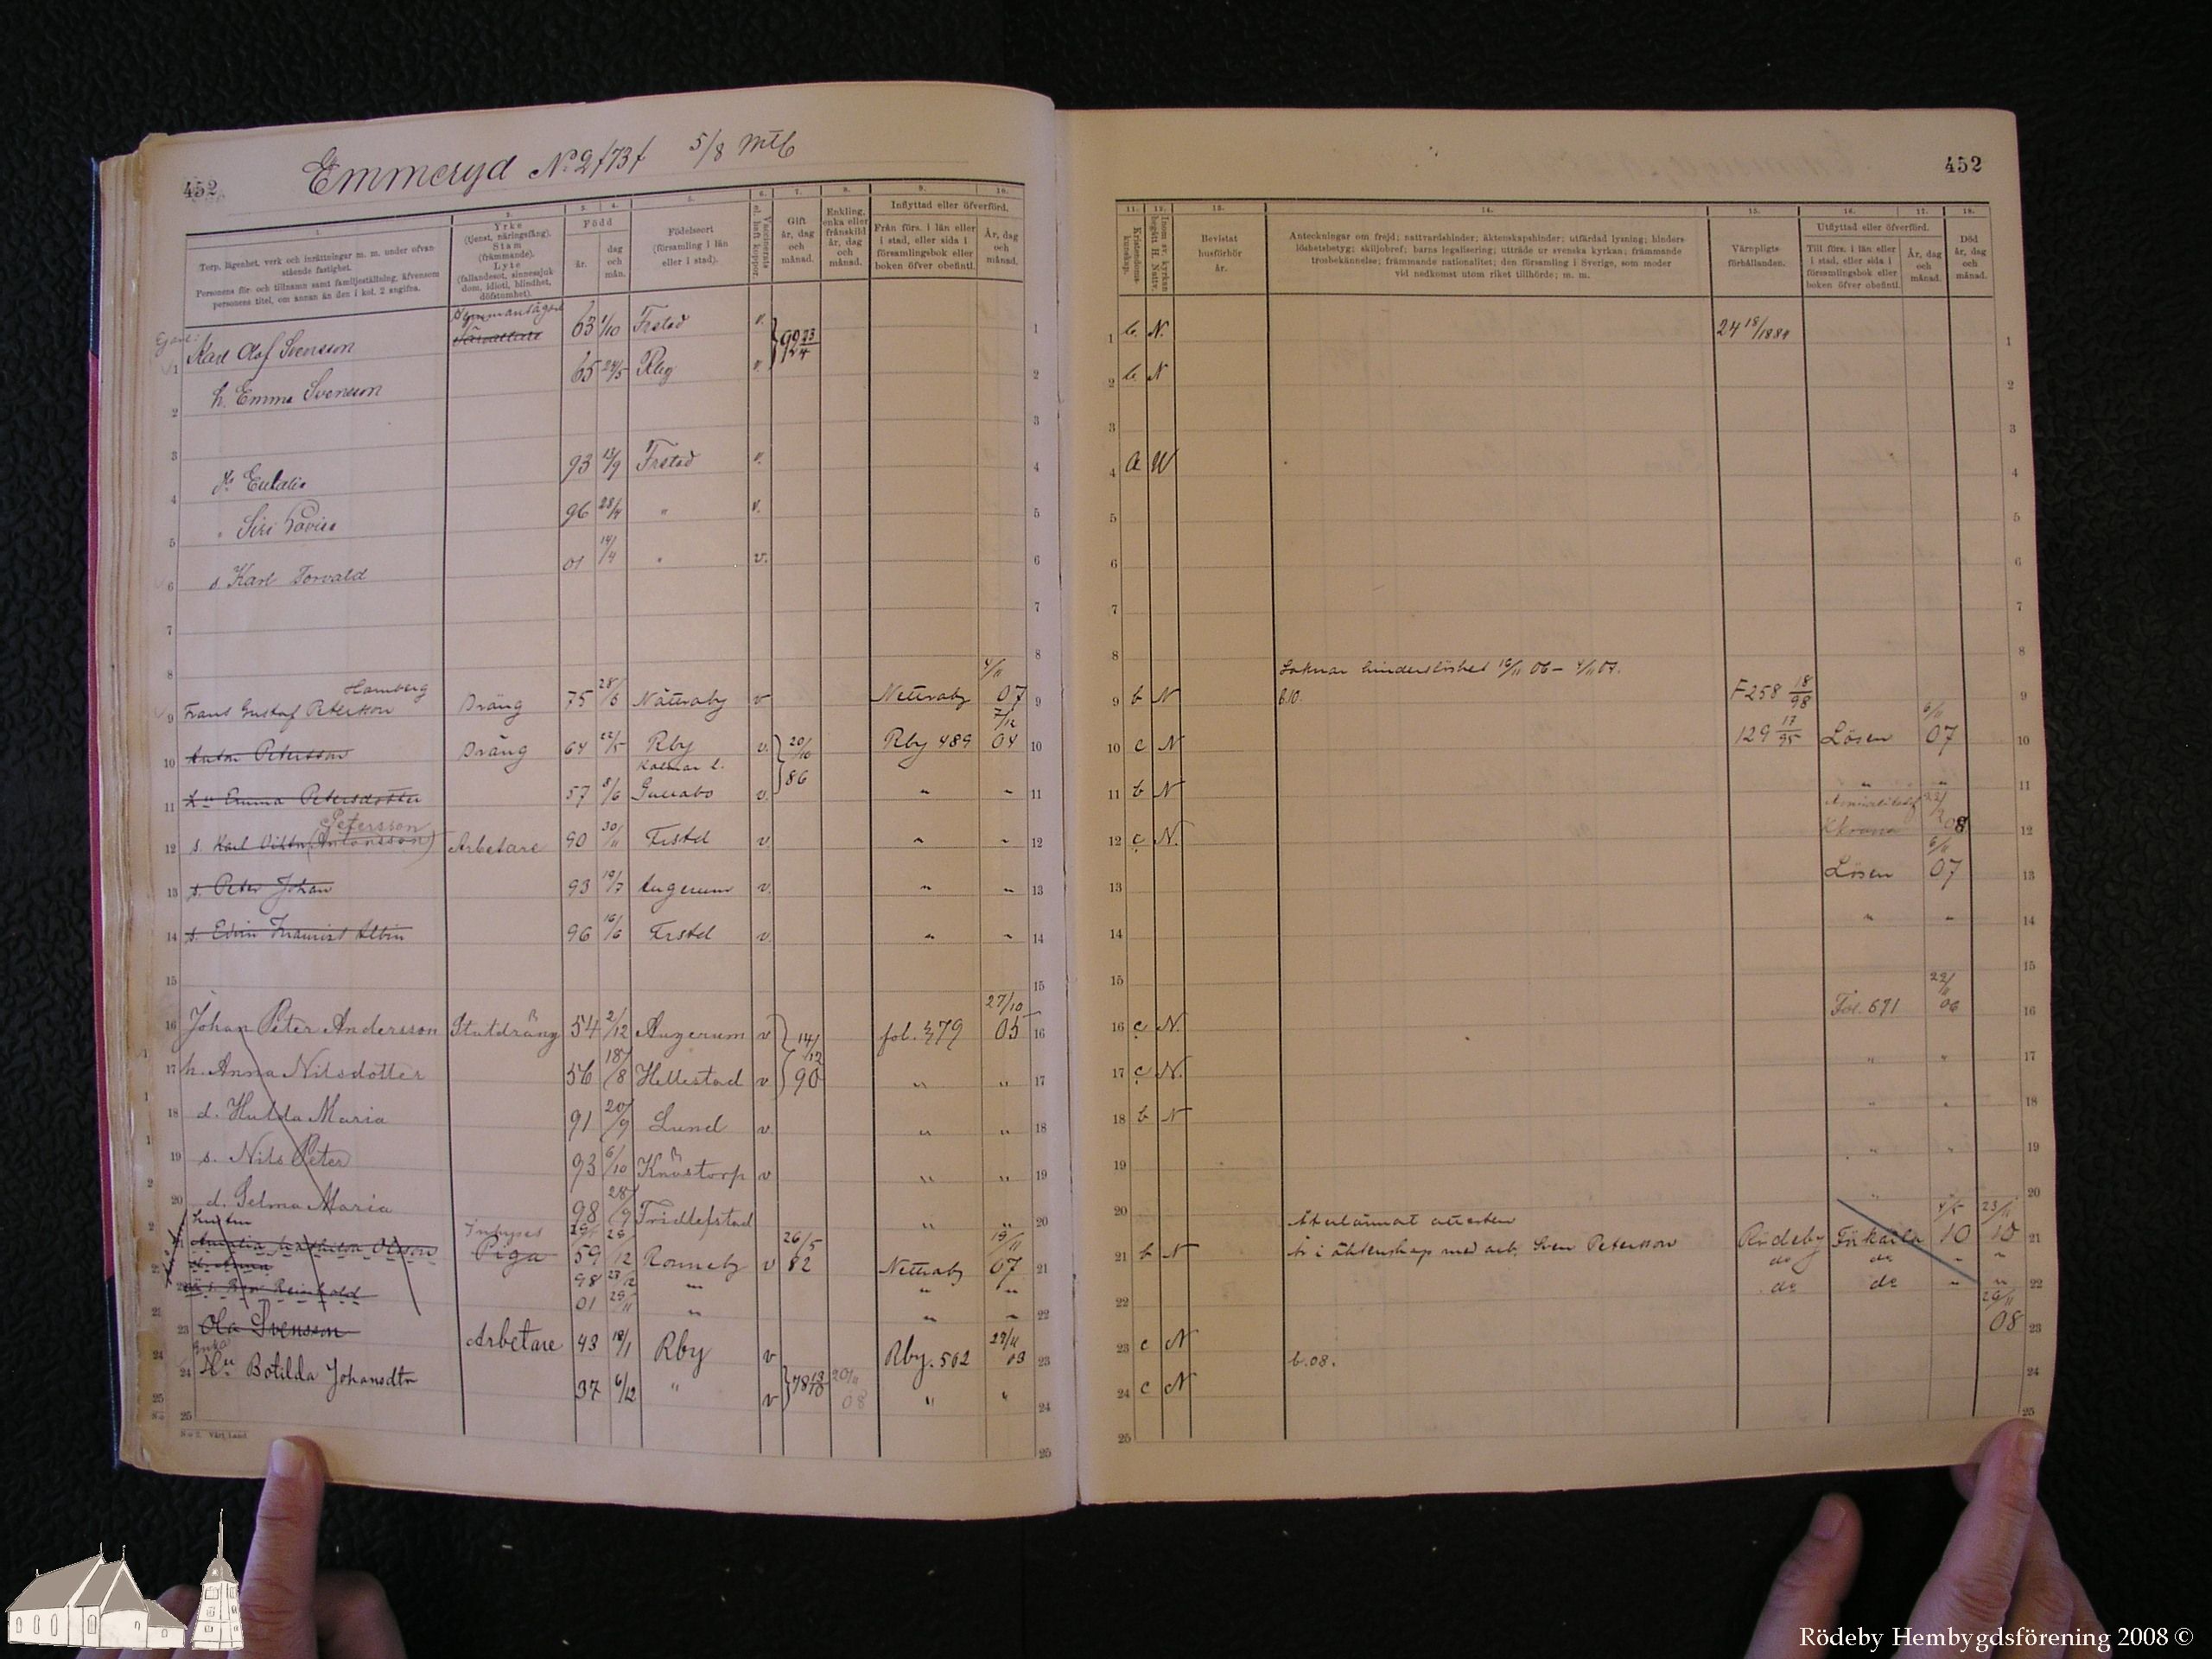 452
Emmeryd No 2 f 73 f 5/8 mtl
1.
Torp, lägenhet, verk och inrättningar m. m. under ofvan stående fastighet.
Personens för- och tillnamn samt familjeställning, äfvensom personens titel, om annan än den i kol. 2 angifna.
2.
Yrke
(tjenst, näringsfång).
Stam
(främmande).
Lyte
(fallandesot, sinnessjukdom, idioti, blindhet, döfstumhet).
3. 4.
Född
år.
dag och mån.
5.
Födelseort
(församling i län eller i stad).
6.
Vaccinerats el. haft koppor.
7.
Gift
år, dag och månad.
8.
Enkling, enka eller frånskild år, dag och månad.
9. 10.
Inflyttad eller öfverförd.
Från förs. i län eller i stad, eller sida i församlingsbok eller boken öfver obefintl.
År, dag och månad.
1 Karl Olof Svensson 63 1/10 Frstad v. 92 23/4 1
2 h. Emma Svensson 65 24/5 Rby v. 2
3 3
4 Eulalia 93 13/9 Frstad v. 4
5 " Siri Lovisa 96 28/4 " v. 5
6 s Karl Torvald 01 14/4 " v. 6
7 7
8 8
9 Frans Gustaf Peterson Hamberg Dräng 75 28/6 Nättraby v Nettraby 4/11 07 9
10 Anton Petersson Dräng 64 22/5 Rby v. 20/10 86 Rby 489 7/12 04 10
11 Hu Emma Petersdotter 57 8/6 Kalmar l. v. " " 11
12 s. Karl (Antonsson) Petersson Arbetare 90 30/11 Frstd v. " " 12
13 s. Peter Johan 93 19/7 Augerum v. " " 13
14 s. Edvin Albin 96 16/6 Frstd v. " " 14
15 15
16 Johan Peter Andersson Statdräng 54 2/12 Augerum v 14/12 90 fol. 479 27/10 05 16
17 h. Anna Nilsdotter 56 18/8 Hellestad v " " 17
18 d. Hulda Maria 91 20/9 Lund v. " " 18
19 s. Nils Peter 93 6/10 Knästorp v " " 19
20 d. Selma Maria 98 28/9 Fridlefstad " " 20
21 Mathilda Olsson Inhyses Piga 59 12 Ronneby v 26/5 82 Nettraby 19/11 07 21
98 23/2 " " "
22 s. Reinhold 01 29/11 " " " 22
23 Ola Svensson Arbetare 43 18/1 Rby v Rby. 562 03 23
24 Enka Hu Botilda Johansdtr 37 6/12 " v 78 13/10 20/11 08 " " 24
25 25
452
11.
Kristendomskunskap.
12.
Inom sv. kyrkan begått H. Nattv.
13.
Bevistat husförhör år.
14.
Anteckningar om frejd; nattvardshinder; äktenskapshinder; utfärdad lysning; hinderslöshetsbetyg; skiljobref; barns legalisering; utträde ur svenska kyrkan; främmande trosbekännelse; främmande nationalitet; den församling i Sverige, som moder vid nedkomst utom riket tillhörde; m. m.
15.
Värnpligtsförhållanden.
16. 17.
Utflyttad eller öfverförd.
Till förs. i län eller i stad, eller sida i församlingsbok eller boken öfver obefintl.
År, dag och månad.
18.
Död
år, dag och månad.
1 b. N. 24 18/1884 1
2 b. N 2
3 3
4 a N 4
5 5
6 6
7 7
8 8
9 b N Saknar hinderslöshet 16/11 06 - 4/11 07. b.10. F 258 18/98 9
10 c N 129 17/95 Lösen 6/11 07 10
11 b N " " 11
12 c N. 08 12
13 Lösen 6/11 07 13
14 " " 14
15 15
16 c N. Fol. 671 22/11 06 16
17 c N. " " 17
18 b N " " 18
19 " " 19
20 " " 20
21 b N Återlämnat attesten
är i äktenskap med arb. Sven Petersson Rödeby Förkärla 4/5 10 23/11 10 21
do do " "
22 do do " " 22
23 c N 08 23
24 c N b. 08. 24
25 25
Rödeby Hembygdsförening 2008 ©